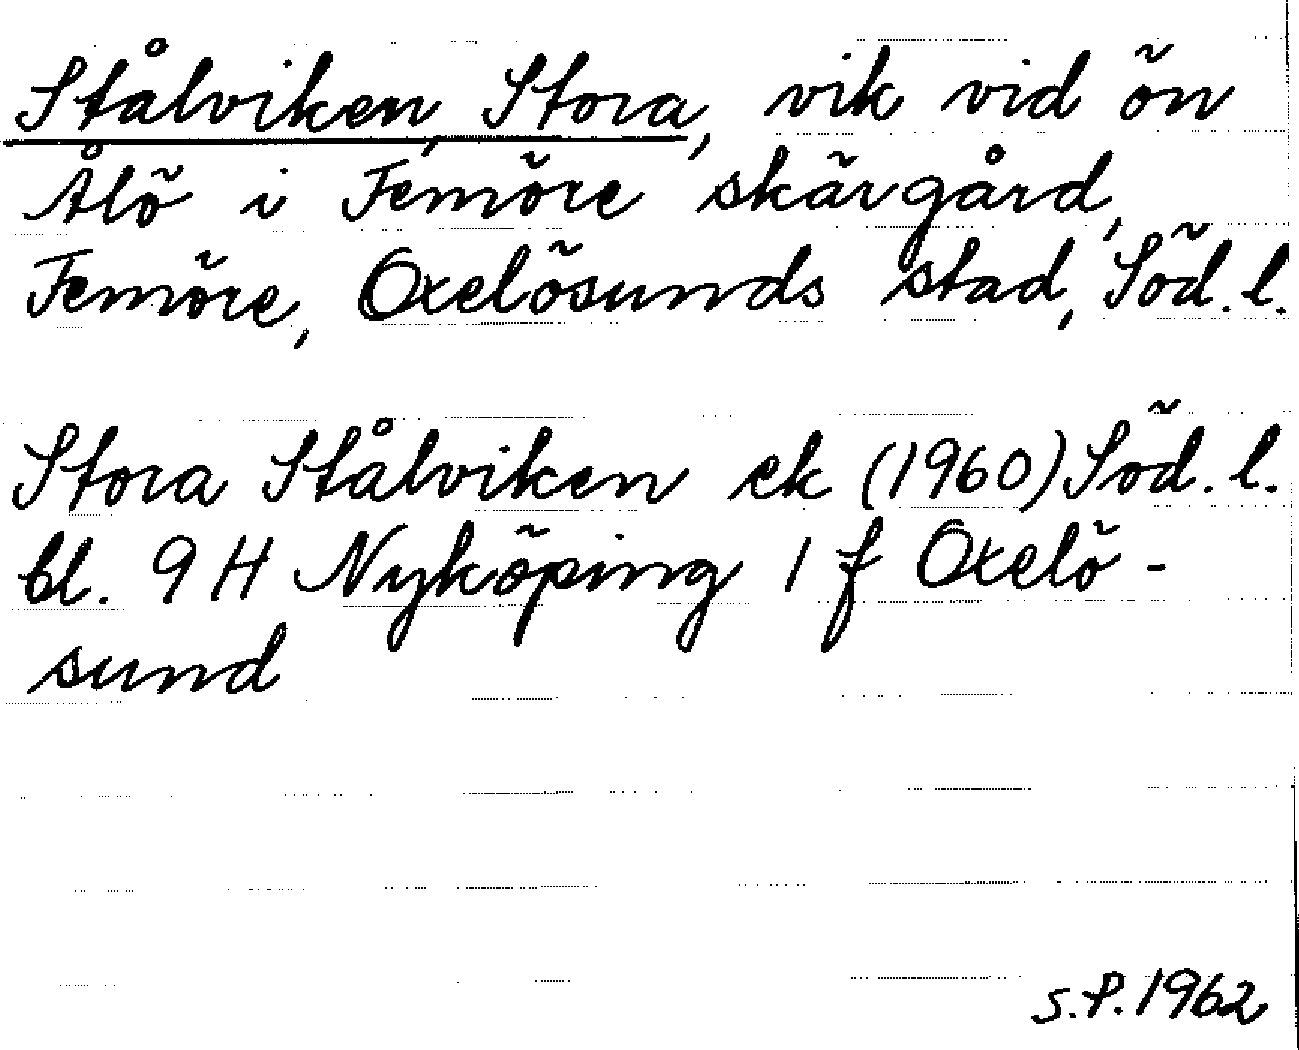 Stålviken, Stora, vik vid ön
Ålö i Femöre skärgård,
Femöre, Oxelösunds stad, Söd. l.
Stora Stålviken ek (1960) Söd. l.
bl. 9 H Nyköping 1 f Oxelö-
sund
S.P. 1962